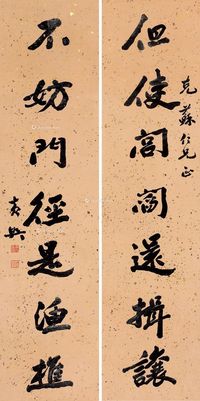 但使閭閻還揖讓
克蘇仁兄正
不妨門徑是漁樵
黄興